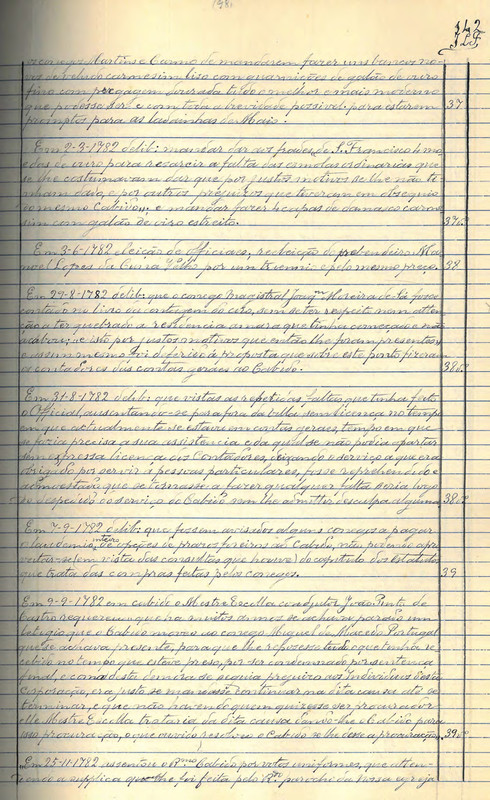 1981
342
327
os conegos Martins e Carmo de mandarem fazer uns bancos no-
vos de veludo carmesim liso com guarnições de galão de ouro
fino com pregagem dourada tudo o melhor e mais moderno
que podesse ser e com toda a brevidade possivel para estarem
promptos para as ladainhas de Maio. 37
Em 2-3-1782 delib: mandar dar aos frades de S. Francisco 4 mo
edas de ouro para resarcir a falta das esmolas ordinarias que
se lhe costumavam dar que por justos motivos se lhe não ti-
nham dado, e por outros prejuizos que tiveram em obsequio
do mesmo Cabido; e mandar fazer 4 capas de damasco carme
sim com galão de ouro estreito. 37vº
Em 3-6-1782 eleição de officiaes, reeleição do prebendeiro Ma-
noel Lopes da Cunha por um triennio e pelo mesmo preço. 38
Em 29-8-1782 delib: que o conego Magistral Joaqm Moreira de Sá fosse
contado no livro da contagem do coro, sem se ter respeito nem atten-
ção a ter quebrado a residencia amara que tinha começado e não
acabou; e isto por justos motivos que então lhe foram presentes,
e assim mesmo foi deferido á proposta que sobre este ponto fizeram
os contadores das contas geraes ao Cabido. 38vº
Em 31-8-1782 delib: que vistas as repetidas faltas que tinha feito
o Official, ausentando-se para fora da villa sem licença no tempo
em que actualmente se estavam contas geraes, tempo em que
se fazia precisa a sua assistencia e da qual se não podia apartar
sem expressa licença dos Contadores, deixando o serviço a que era
obrigado por servir á pessoas particulares, fosse reprehendido e
admoestado que se tornasse a fazer qualquer falta seria logo
despedido do serviço do Cabido sem lhe admittir desculpa alguma. 38vº
Em 7-9-1782 delib: que fossem avisados alguns conegos a pagar
o laudemio inteiro de opções de prazos foreiros ao Cabido, não podendo apro
veitar-se em vista das consultas que houve do capitulo dos Estatutos
que trata das compras feitas pelos conegos. 39
Em 9-9-1782 em cabido o Mestre Escolla coadjutor João Pinto de
Castro requereu que ha muitos annos se achava parado um
letigio que o Cabido moveo ao conego Miguel de Macedo Portugal
que se achava presente, para que lhe repozesse tudo o que tinha re-
cebido no tempo que esteve preso, por ser condemnado por sentença
final, e como desta demora se seguia prejuizo aos Individuos d'esta
Corporação, era justo se mandasse continuar na dita causa até se
terminar, e que não havendo quem quizesse ser procurador
elle Mestre Escolla trataria da dita causa dando-lhe o Cabido para
isso procuração, o que ouvido resolveo o Cabido se lhe desse a procuração. 39vº
Em 25-11-1782 assentou o Rmo Cabido por votos uniformes, que atten-
dendo a supplica que lhe foi feita pelo Rdo parocho da nossa egreja